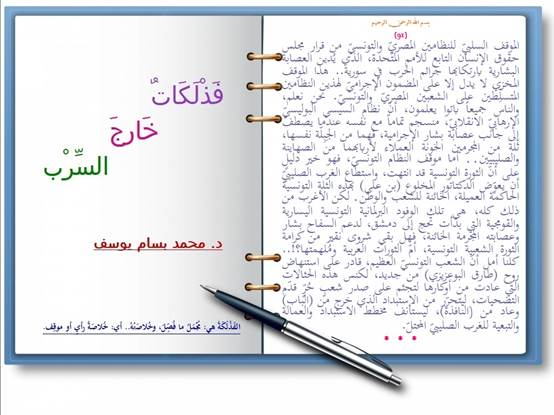 بسم الله الرحمن الرحيم
(91)
الموقف السلبيّ للنظامين المصريّ والتونسيّ من قرار مجلس
حقوق الإنسان التابع للأمم المتّحدة، الذي يُدين العصابة
البشارية بارتكابها جرائم الحرب في سورية.. هذا الموقف
المخزي لا يدل إلا على المضمون الإجراميّ لهذين النظامين
المتسلِّطَين على الشعبين المصريّ والتونسيّ. نحن نعلم،
والناس جميعاً باتوا يعلمون، أنّ نظام السيسي البوليسيّ
الإرهابيّ الانقلابيّ، منسجم تماماً مع نفسه عندما يصطفّ
إلى جانب عصابة بشار الإجرامية، فهما من الجِبِلّة نفسها،
ثلة من المجرمين الخونة العملاء لأربابهما من الصهاينة
والصليبيين.. أما موقف النظام التونسيّ، فهو خير دليل
على أنّ الثورة التونسية قد انتهت، واستطاع الغرب الصليبيّ
أن يعوِّض الدكتاتور المخلوع (بن علي) بهذه الثلة التونسية
الحاكمة العميلة، الخائنة للشعب والوطن. لكن الأغرب من
ذلك كله، هي تلك الوفود البرلمانية التونسية اليسارية
والقومجية التي باتت تحج إلى دمشق، لدعم السفاح بشار
وعصابته المجرمة الخائنة، فهل بقي شروى نقير من كرامة
الثورة الشعبية التونسية، أم الثورات العربية ومُلهمتها؟!..
كلنا أمل أنّ الشعب التونسيّ العظيم، قادر على استنهاض
روح (طارق البوعزيزي) من جديد، لكنس هذه الحثالات
التي عادت من أوكارها لتجثم على صدر شعبٍ حُرّ قدّم
التضحيات، ليتحرّر من الاستبداد الذي خرج من (الباب)
وعاد من (النافذة)، ليستأنف مخطط الاستبداد والعمالة
والتبعية للغرب الصليبيّ المحتلّ.
فَذْلَكَاتٌ
خَارِجَ
السِّرْب
د. محمد بسام يوسف
الفَذْلَكَة هي: مُجْمَلُ ما فُصِّلَ، وخُلاصَتُهُ.. أي: خُلاصَةُ رأيٍ أو موقِف.